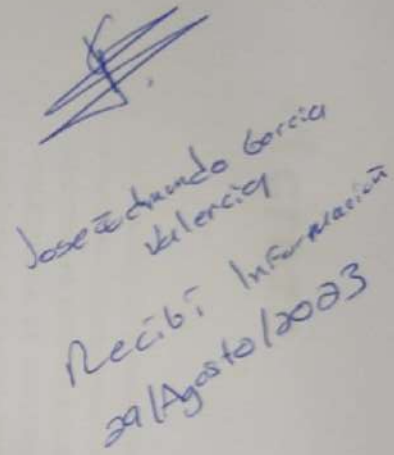 Jose Edmundo Garcia
Valencia
Recibí Información
29/Agosto/2023